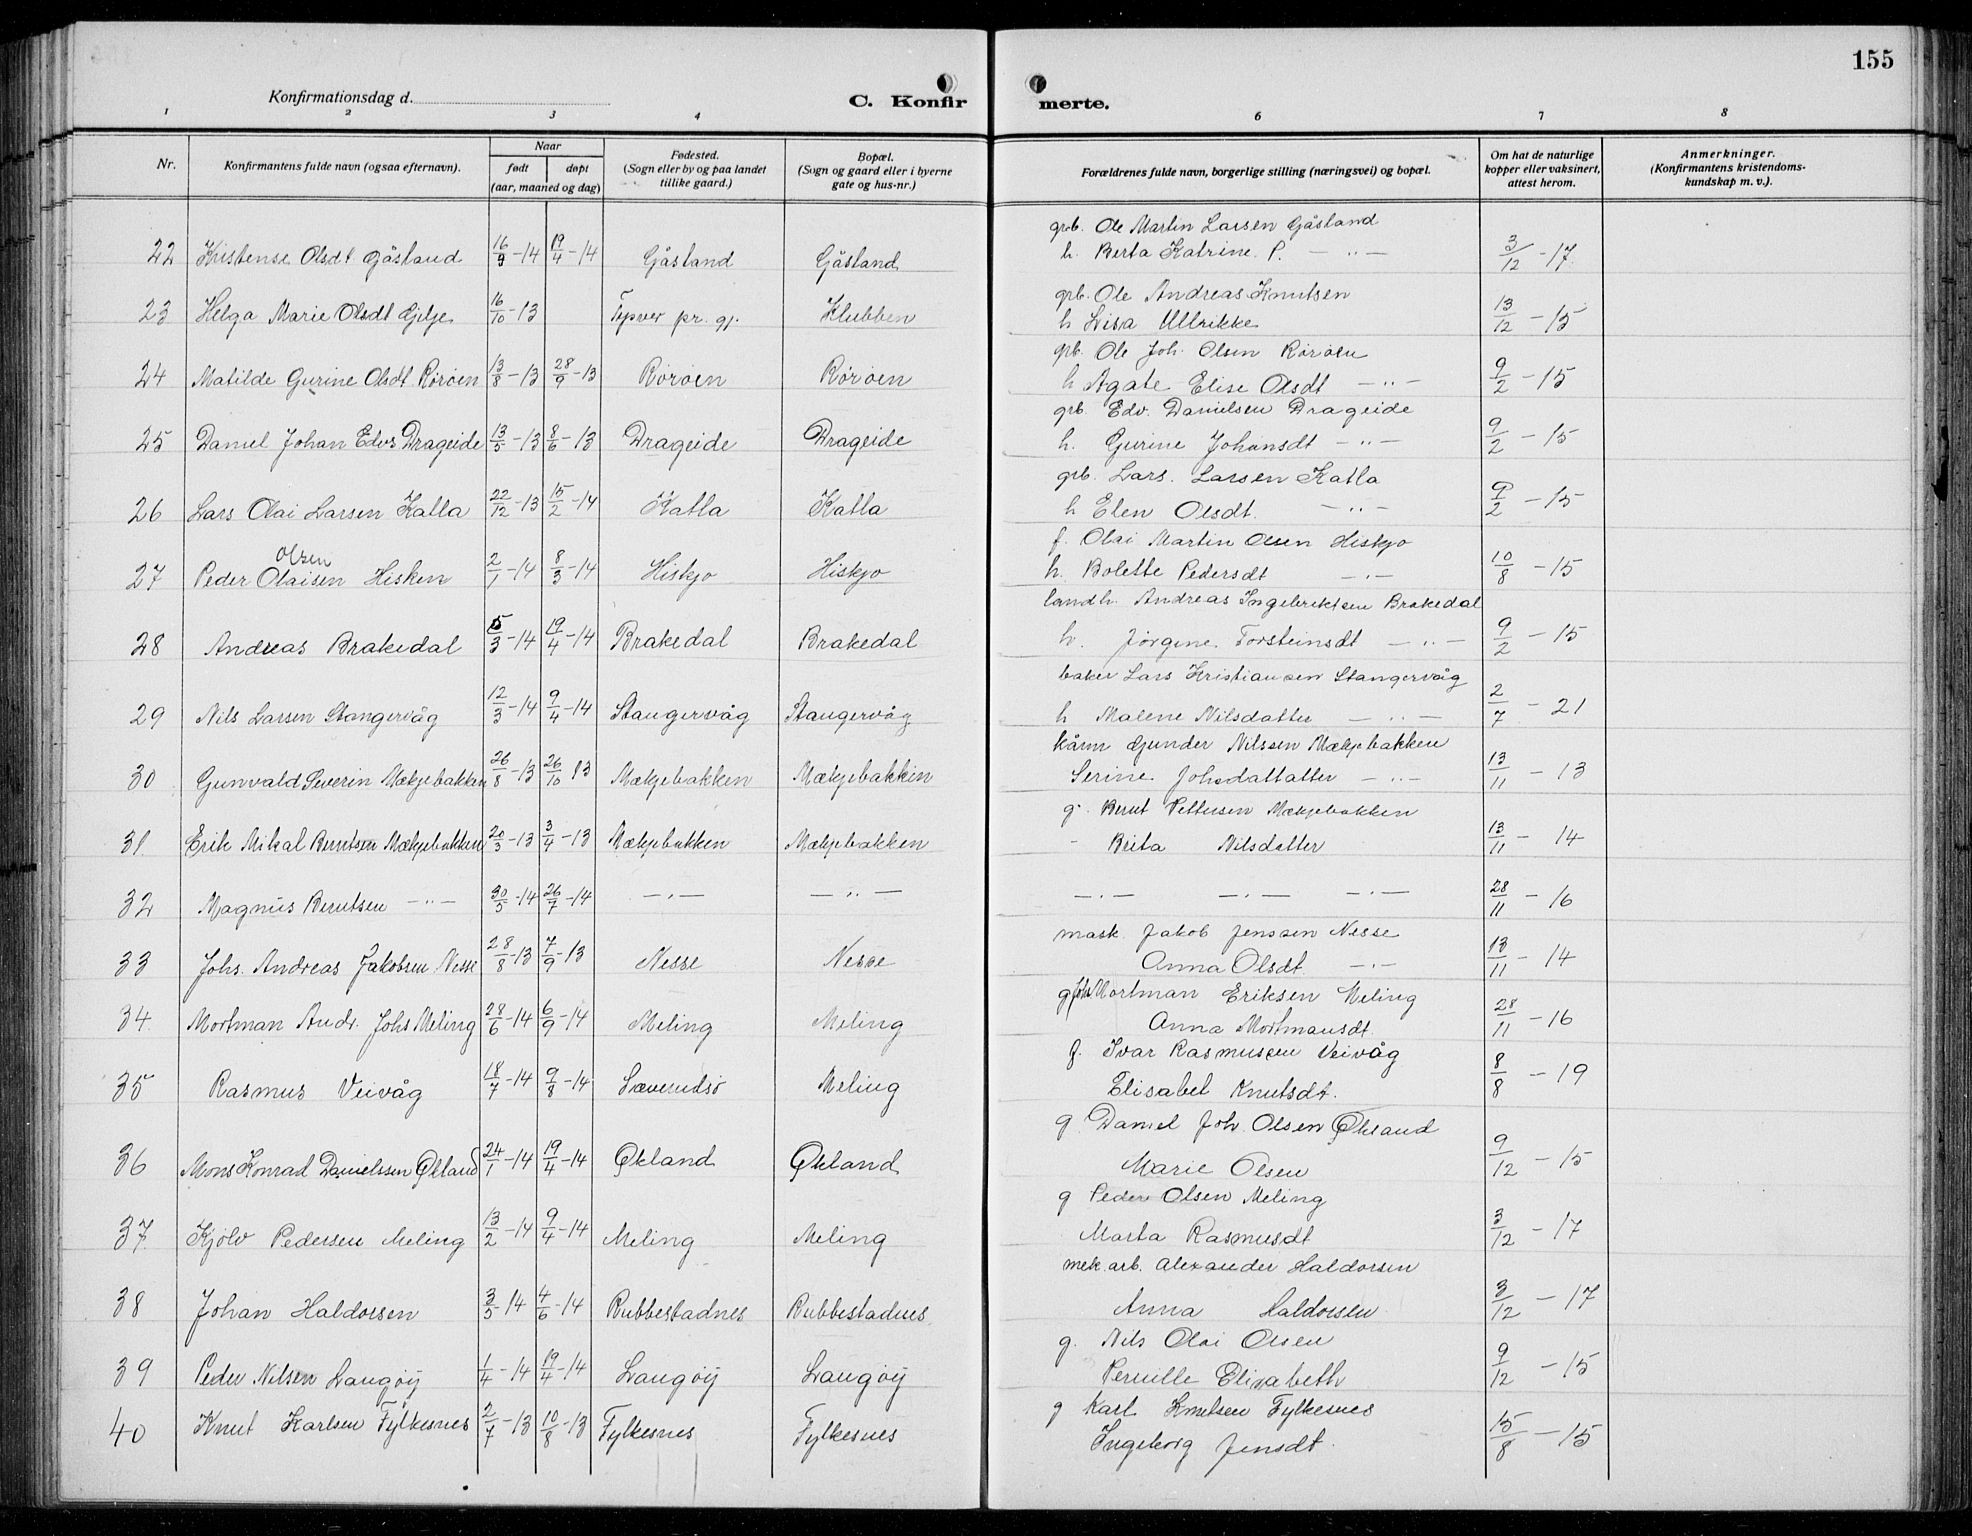 155
Konfirmationsdag d.
C. Konfir merte.
1 2 3 4 6 7 8
Nr.
Konfirmantens fulde navn (ogsaa efternavn).
Naar
født døpt
(aar, maaned og dag)
Fødested.
(Sogn eller by og paa landet
tillike gaard.)
Bopæl.
(Sogn og gaard eller i byerne
gate og hus-nr.)
Forældrenes fulde navn, borgerlige stilling (næringsvei) og bopæl.
Om hat de naturlige
kopper eller vaksinert,
attest herom.
Anmerkninger.
(Konfirmantens kristendoms-
kundskap m. v.).
grb. Ole Martin Larsen Gåsland
22 Kristense Olsdt Gåsland 16/3-14 19/4-14 Gåsland Gåsland h. Berta Katrine P. — " — 3/12-17
grb. Ole Andreas Knutsen
23 Helga Marie Olsdt Gjelje 16/10-13 Tysver pr. gj. Klubben h Lisa Ullrikke 13/12-15
grb. Ole Joh. Olsen Rörøen
24 Matilde Gurine Olsdt Rörøen 13/8-13 28/9-13 Rörøen Rörøen h Agate Elise Olsdt — " — 9/2-15
grb. Edv. Danielsen Drageide
25 Daniel Johan Edvs Drageide 13/5-13 8/6-13 Drageide Drageide h. Gurine Johansdt — " — 9/2-15
grb. Lars. Larsen Katla
26 Lars Olai Larsen Katla 22/12-13 15/2-14 Katla Katla h Elen Olsdt. — " — 9/2-15
f. Olai Martin Olsen Hiskjo
Olsen
27 Peder Olaisen Hisken 2/1-14 8/3-14 Hiskjo Hiskjo h. Bolette Pedersdt — " — 10/8-15
landh. Andreas Ingebriktsen Brakedal
28 Andreas Brakedal 5/3-14 19/4-14 Brakedal Brakedal h. Jørgine Torsteinsdt — " — 9/2-15
baker Lars Kristiansen Stangervåg
29 Nils Larsen Stangervåg 12/3-14 9/4-14 Stangervåg Stangervåg h Malene Nilsdatter — " — 2/7-21
kårm Gunder Nilssen Mækjebakken
30 Gunvald Severin Mækjebakken 26/8-13 26/10 13 Mækjebakken Mækjebakkin Serine Johsdattatter — " — 13/11-13
g. Bernt Pettersen Mækjebakken
31. Erik Mikal Berntsen Mækjebakken 20/3-13 3/4-13 Mækjebakken Mækjebakken - Brita Nilsdatter 13/11-14
32 Magnus Berntsen — " — 30/5-14 26/7-14 — " — — " — — " — — " — — " — 28/11-16
mask. Jakob Jenssen Nesse
33 Johs. Andreas Jakobsen Nesse 28/8-13 7/9-13 Nesse Nesse Anna Olsdt — " — 13/11-14
g Johs Mortman Eriksen Meling
34. Mortman Andr. Johs Meling 28/6-14 6/9-14 Meling Meling Anna Mortmansdt. 28/11-16
f. Ivar Rasmussen Veivåg
35 Rasmus Veivåg 18/7-14 9/8-14 Sæverudsö Meling Elisabet Knutsdt. 8/8-19
g. Daniel Joh. Olsen Økland
36 Mons Konrad Danielssen Økland 24/1-14 19/4-14 Økland Økland Marie Olsen 9/12-15
g Peder Olsen Meling
37. Kjölv Pedersen Meling 13/2-14 9/4-14 Meling Meling Marta Rasmusdt 3/12-17
mek. arb. Alexander Haldorsen
38 Johan Haldorsen 3/5-14 4/6-14 Rubbestadnes Rubbestadnes Anna Haldorsen 3/12-17
g. Nils Olai Olsen
39 Peder Nilsen Langøy 1/4-14 19/4-14 Langøy Langøy Pernille Elisabeth 9/12-15
g Karl Knutsen Fylkesnes
40 Knut Karlsen Fylkesnes 2/7-13 10/8-13 Fylkesnes Fylkesnes Ingeborg Jensdt. 15/8-15